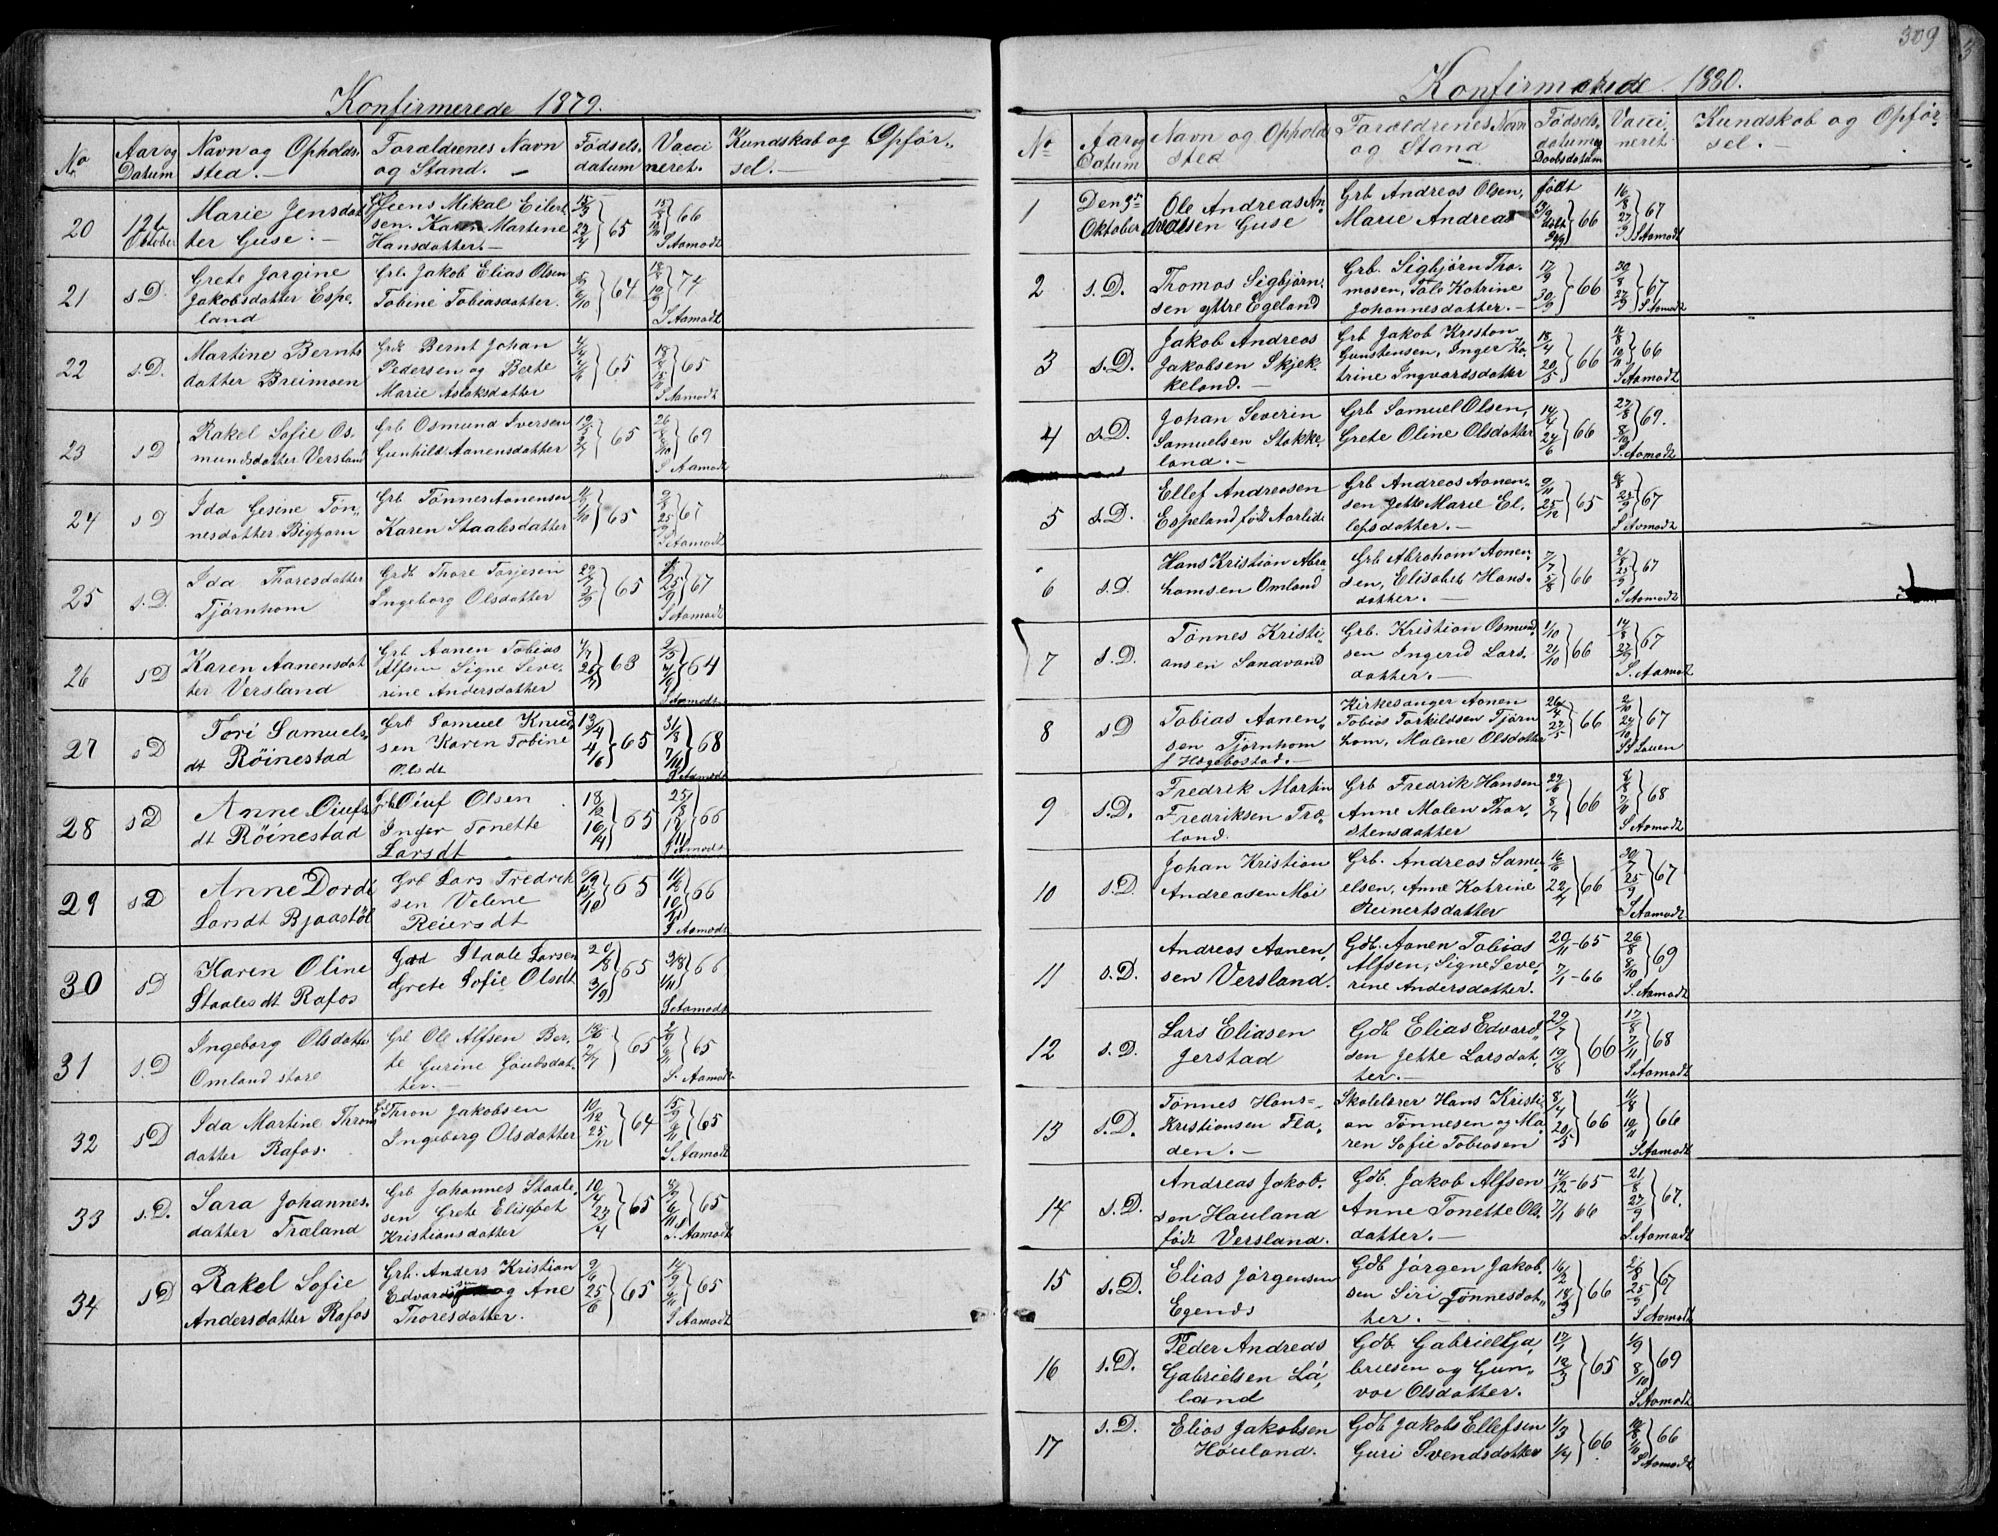 Konfirmerede 1879.
No
Aar og Datum
Navn og Opholdssted.
Foraldrenes Navn og Stand.
Fødselsdatum
Vaccineret.
Kundskab og Opførsel.
20
12te Oktober
Marie Jensdatter Guse.
Jens Mikal Eilertsen. Karen Martine Hansdatter.
65
66
S Aamodt
21
s D.
Grete Jorgine Jakobsdatter Espeland
Grb Jakob Elias Olsen Tobine Tobiasdatter.
64
74
S Aamodt
22
s. D.
Martine Berntsdatter Breimoen
Grb Bernt Johan Pedersen og Berte Marie Aslaksdatter
65
65
S Aamodt
23
s D
Rakel Sofie Osmundsdatter Versland
Grb Osmund Iversen Gunhild Aanensdatter
65
69
S Aamodt
24
s D
Ida Gesine Tønnesdatter Bigtjørn
Grb Tønnes Aanensen Karen Staalesdatter
65
67
S Aamodt
25
s. D.
Ida Thoresdatter Tjørnhom
Grdb Thore Torjesen Ingeborg Olsdatter
65
67
S Aamodt
26
s D
Karen Aanensdatter Versland
Grb Aanen Tobias Alfsen Signe Severine Andersdatter
63
64
S Aamodt
27
s D
Tori Samuelsdt Röinestad
Grb Samuel Knudsen Karen Tobine Olsdt
13/4 4/6 65
31/8 7/11 68
S Aamodt
28
s D
Anne Oiufsdt Röinestad
Grb Oiuf Olsen Inger Tonette Larsdt
18/2 16/4 65
66
S Aamodt
29
s D
Anne Dorde Larsdt Bjaastöl
Grb Lars Fredriksen Velene Reiersdt
65
66
S Aamodt
30
s D
Karen Oline Staalesdt Rafos
Staale Larsen Grete Sofie Olsdt
20/8 3/9 65
66
S Aamodt
31
s. D
Ingeborg Olsdatter Omland store
Grb Ole Alfsen Berte Gurine
65
65
S. Aamodt
32
s D
Ida Martine Thronsdatter Rafos.
Thron Jakobsen Ingeborg Olsdatter
10/12 25/12 64
65
S Aamodt
33
s. D.
Sara Johannesdatter Traland
Grb Johannes Staalesen Grete Elisabet Kristiansdatter
65
65
S. Aamodt
34
s D
Rakel Sofie Andersdatter Rafos
Grb. Anders Kristian Edvardsen og Ane Thoresdatter.
2/6 25/6 65
65
S Aamodt
309
Konfirmerede 1880.
No
Aar og Datum
Navn og Opholdssted
Foraldrenes Navn og Stand
Fødselsdatum og Daabsdatum
Vaccineret
Kundskab og Opførsel.
1
Den 3die Oktober
Ole Andreas Andreassen Guse
Grb Andreas Olsen, Marie Andreas
født
66
16/8 27/9 67
S Aamodt
2
s. D.
Thomas Sigbjørnsen yttre Egeland
Grb. Sigbjørn Thomasen, Tale Katrine Johannesdatter.
17/9 30/9 66
67
S Aamodt
3
s. D.
Jakob Andreas Jakobsen Skjekkeland.
Grb Jakob Kristen Gunstensen, Inger Katrine Ingvardsdatter
18/4 20/5 66
66
S Aamodt
4
s. D.
Johan Severin Samuelsen Stokkeland.
Grb Samuel Olsen, Grete Oline Olsdatter
66
69.
S. Aamodt
5
s. D.
Ellef Andreasen Espeland født Aarlide
Grb Andreas Aanensen Jette Marie Ellefsdatter.
9/11 25/12 65
67
S Aamodt
6
s. D.
Hans Kristian Abrahamsen Omland
Grb Abraham Aanensen, Elisabet Hansdatter.
7/7 5/8 66
67
S Aamodt
7
s. D
Tønnes Kristiansen Sandvand
Grb. Kristian Osmundsen Ingerid Larsdatter.
1/10 21/10 66
14/8 27/9 67
S. Aamodt
8
s D
Tobias Aanensen Tjørnhom f Hægebostad.
Kirkesanger Aanen Tobias Torkildsen Tjørnhom, Malene Olsdatter
26/4 27/5 66
67
9
s. D.
Fredrik Martin Fredriksen Træland.
Grb Fredrik Hansen Anne Malen Thorstensdatter
66
68
S Aamodt
10
s. D.
Johan Kristian Andreasen Moi
Grb. Andreas Samuelsen, Anne Katrine Reinertsdatter
66
67
S Aamodt
11
s. D.
Andreas Aanensen Versland.
Gdb. Aanen Tobias Alfsen, Signe Severine Andersdatter.
20/11-65 7/1-66
26/8 8/10 69
S. Aamodt
12
s. D.
Lars Eliasen Jerstad
Gdb Elias Edvardsen Jette Larsdatter.
29/7 19/8 66
17/8 7/11 68
S Aamodt
13
s. D.
Tønnes Hans Kristiansen Fladen.
Skolelærer Hans Kristian Tønnesen og Maren Sofie Tobiasen
8/4 20/5 66
66
S Aamodt
14
s. D.
Andreas Jakobsen Hauland født Versland.
Gdb. Jakob Alfsen Anne Tonette Olsdatter.
12/12-65 7/1 66
21/8 27/9 67.
S. Aamodt
15
s. D.
Elias Jörgensen Egends
Gdb Jörgen Jakobsen Siri Tønnesdatter.
16/2 18/3 66
67
S Aamodt
16
s. D.
Peder Andreas Gabrielsen Låland
Gdb Gabriel Gabrielsen og Gunvor Olsdatter.
17/1 12/3 65
1/9 8/10 69
S Aamodt
17
s. D.
Elias Jakobsen Høuland.
Gdb Jakobs Ellefsen Guri Svendsdatter
1/3 1/4 66
66
S Aamodt